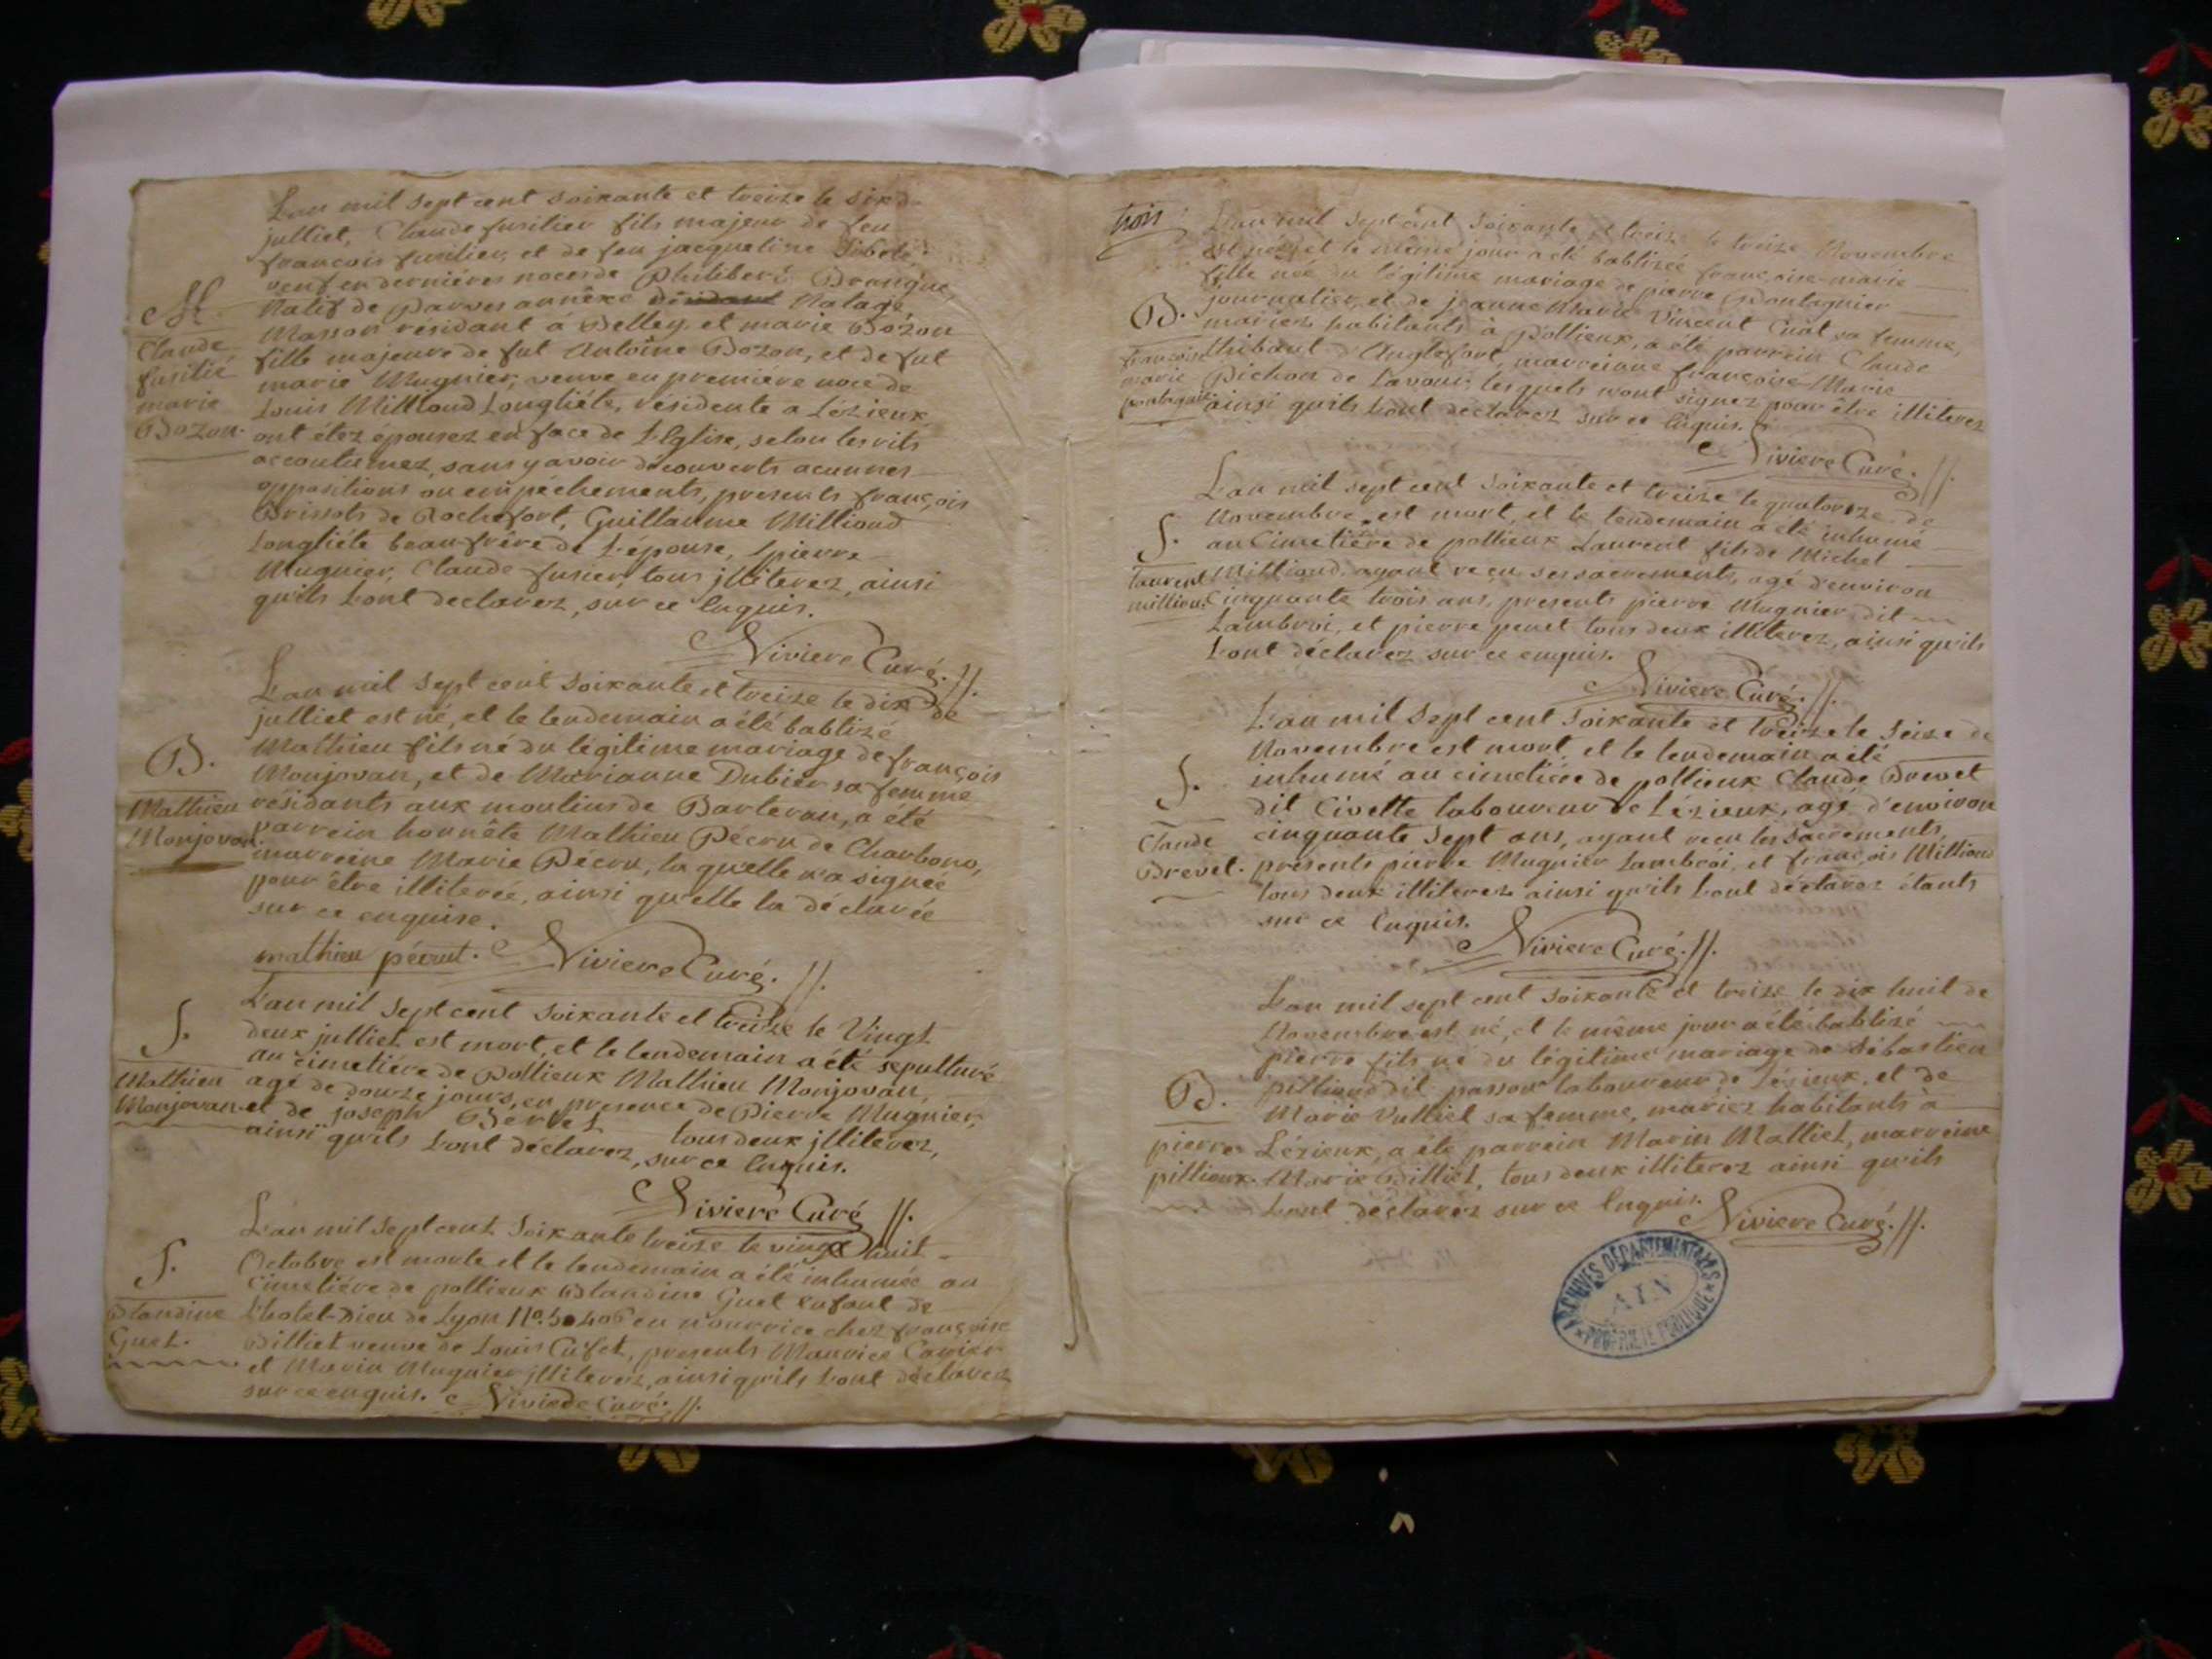 L'an mil sept cent soixante et treize le six de
julliet, Claude fusilier fils majeur de feu
francois fusilier, et de feu jacqueline
veuf en derniéres noces de Philiberte
Natif de parves annéxe Natage
M.
Masson résidant á Belley et marie Bozon
Claude
fusilié
marie
Bozon.
fille majeure de fut Antoine Bozon, et de fut
marie Mugnier, veuve en premiére noce de
Louis Milliand Longliéte, résidente a Lézieux
ont étez épousez en face de L'Eglise, selon les rits
accoutumez, sans y avoir découverts acunnes
oppositions ou empéchements, presents françois
Brissots de Rochefort, Guillaume Milliand
Longliéte beau frére de L'épouse, pierre
Mugnier, Claude fusier, tous jlliterez, ainsi
qu'ils L'ont declarez, sur ce Enquis.
Riviere Curé.
L'an mil sept cent soixante et treize le dix de
julliet est né, et le lendemain a été babtizé
B.
Mathieu
Monjovan
Mathieu fils né du légitime mariage de françois
Monjovan, et de Marianne Dubier sa femme
résidants aux moulins de Barteran, a été
parrein honnête Mathieu Pécru de Charbono,
marreine Marie Pécru, la qu'elle n'a signée
pour être illiterée, ainsi qu'elle la déclarée
sur ce enquise.
mathieu pérrut. Riviere Curé.
L'an mil sept cent soixante et treize le Vingt
S.
Mathieu
Monjovan
deux julliet est mort, et le lendemain a été sepulturé
au cimetiére de Pollieux Mathieu Monjovan,
agé de douze jours, en presence de Pierre Mugnier,
et de joseph Bervet tous deux jlliterez,
ainsi qu'ils L'ont déclarez, sur ce Enquis.
Riviere Curé
L'an mil sept cent soixante treize le vingt huit
S.
Blandine
Guet.
Octobre est morte et le lendemain a été inhumée au
cimetiére de pollieux Blandine Guet enfant de
L'hotel-Dieu de Lyon en nourrice chez françoise
Billiet veuve de Louis Cufet, presents Maurice Carrier
et Marin Mugnier jlliterez, ainsi qu'ils L'ont déclarez
sur ce enquis. Riviere Curé.
trois
L'an mil sept cent soixante et treize le treize Novembre
est née, et le même jour a été babtizée françoise-marie
fille née du légitime mariage de pierre Poulagnier
B.
françoise
marie
journalier, et de jeanne Marie Vincent Cuat sa femme,
mariez habitants à Pollieux, a été parrein Claude
thibaut d'Anglefort, marreinne françoise-Marie
Pichon de Lavour, lesquels n'ont signez pour être illiterez
ainsi qu'ils L'ont déclarez sur ce Enquis.
Riviere Curé.
L'an mil sept cent soixante et treize le quatorze de
S.
Laurent
Novembre est mort, et le lendemain a été inhumé
au Cimetiére de pollieux Laurent fils de Michel
Milliand, ayant reçu ses sacrements, agé d'environ
Cinquante trois ans, presents pierre Mugnier dit
Lambroi, et pierre penet tous deux illiterez, ainsi qu'ils
L'ont déclarez sur ce enquis.
Riviere Curé.
L'an mil sept cent soixante et treize le seize de
S.
Claude
Brevet.
Novembre est mort, et le lendemain a été
inhumé au cimetiére de pollieux Claude Brevet
dit Civette laboureur de Lézieux, agé d'environ
cinquante sept ans, ayant recu les sacrements,
présents pierre Mugnier Lambroi, et françois Milliand
tous deux illiterez ainsi qu'ils L'ont déclarez étants
sur ce Enquis.
Riviere Curé.
L'an mil sept cent soixante et treize le dix huit de
Novembre est né, et le même jour a été babtizé
B.
pierre
pierre fils né du légitime mariage de Sébastien
pilliond dit passour laboureur de Lézieux, et de
Marie Vulliet sa femme, mariez habitants à
Lézieux, a été parrein Marin Malliet, marreine
Marie Billiet, tous deux illiterez ainsi qu'ils
L'ont déclarez sur ce Enquis.
Riviere Curé.
ARCHIVES DÉPARTEMENTALES
AIN
PROPRIÉTÉ PUBLIQUE